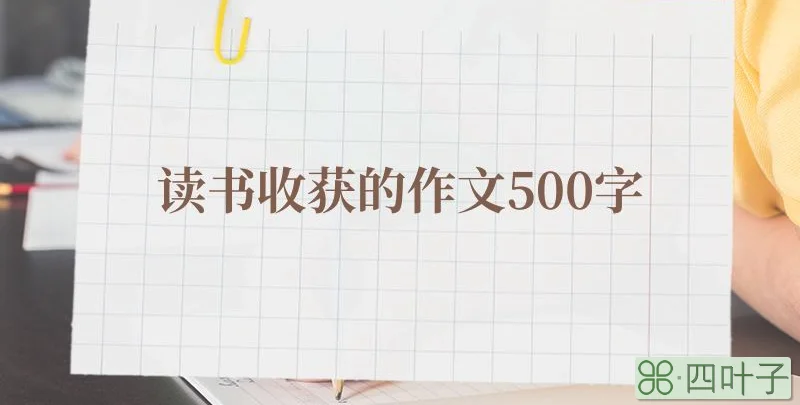 读书收获的作文500字
四叶子